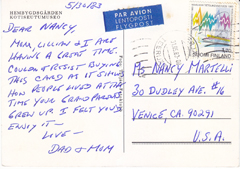 HEMBYGDSGÅRDEN
KOTISEUTUMUSEO
5/30/83
PAR AVION
LENTOPOSTI
FLYGPOST
SUOMI FINLAND
DEAR NANCY,
MOM, LILLIAN & I ARE
HAVING A GREAT TIME.
COULDN'T RESIST BUYING
THIS CARD AS IT SHOWS
HOW PEOPLE LIVED AT THE
TIME YOUR GRANDPARENTS
GREW UP. I FELT YOU'D
ENJOY IT—
LOVE—
DAD & MOM
MS NANCY MARTELLI
30 DUDLEY AVE. #16
VENICE, CA. 90291
U.S.A.